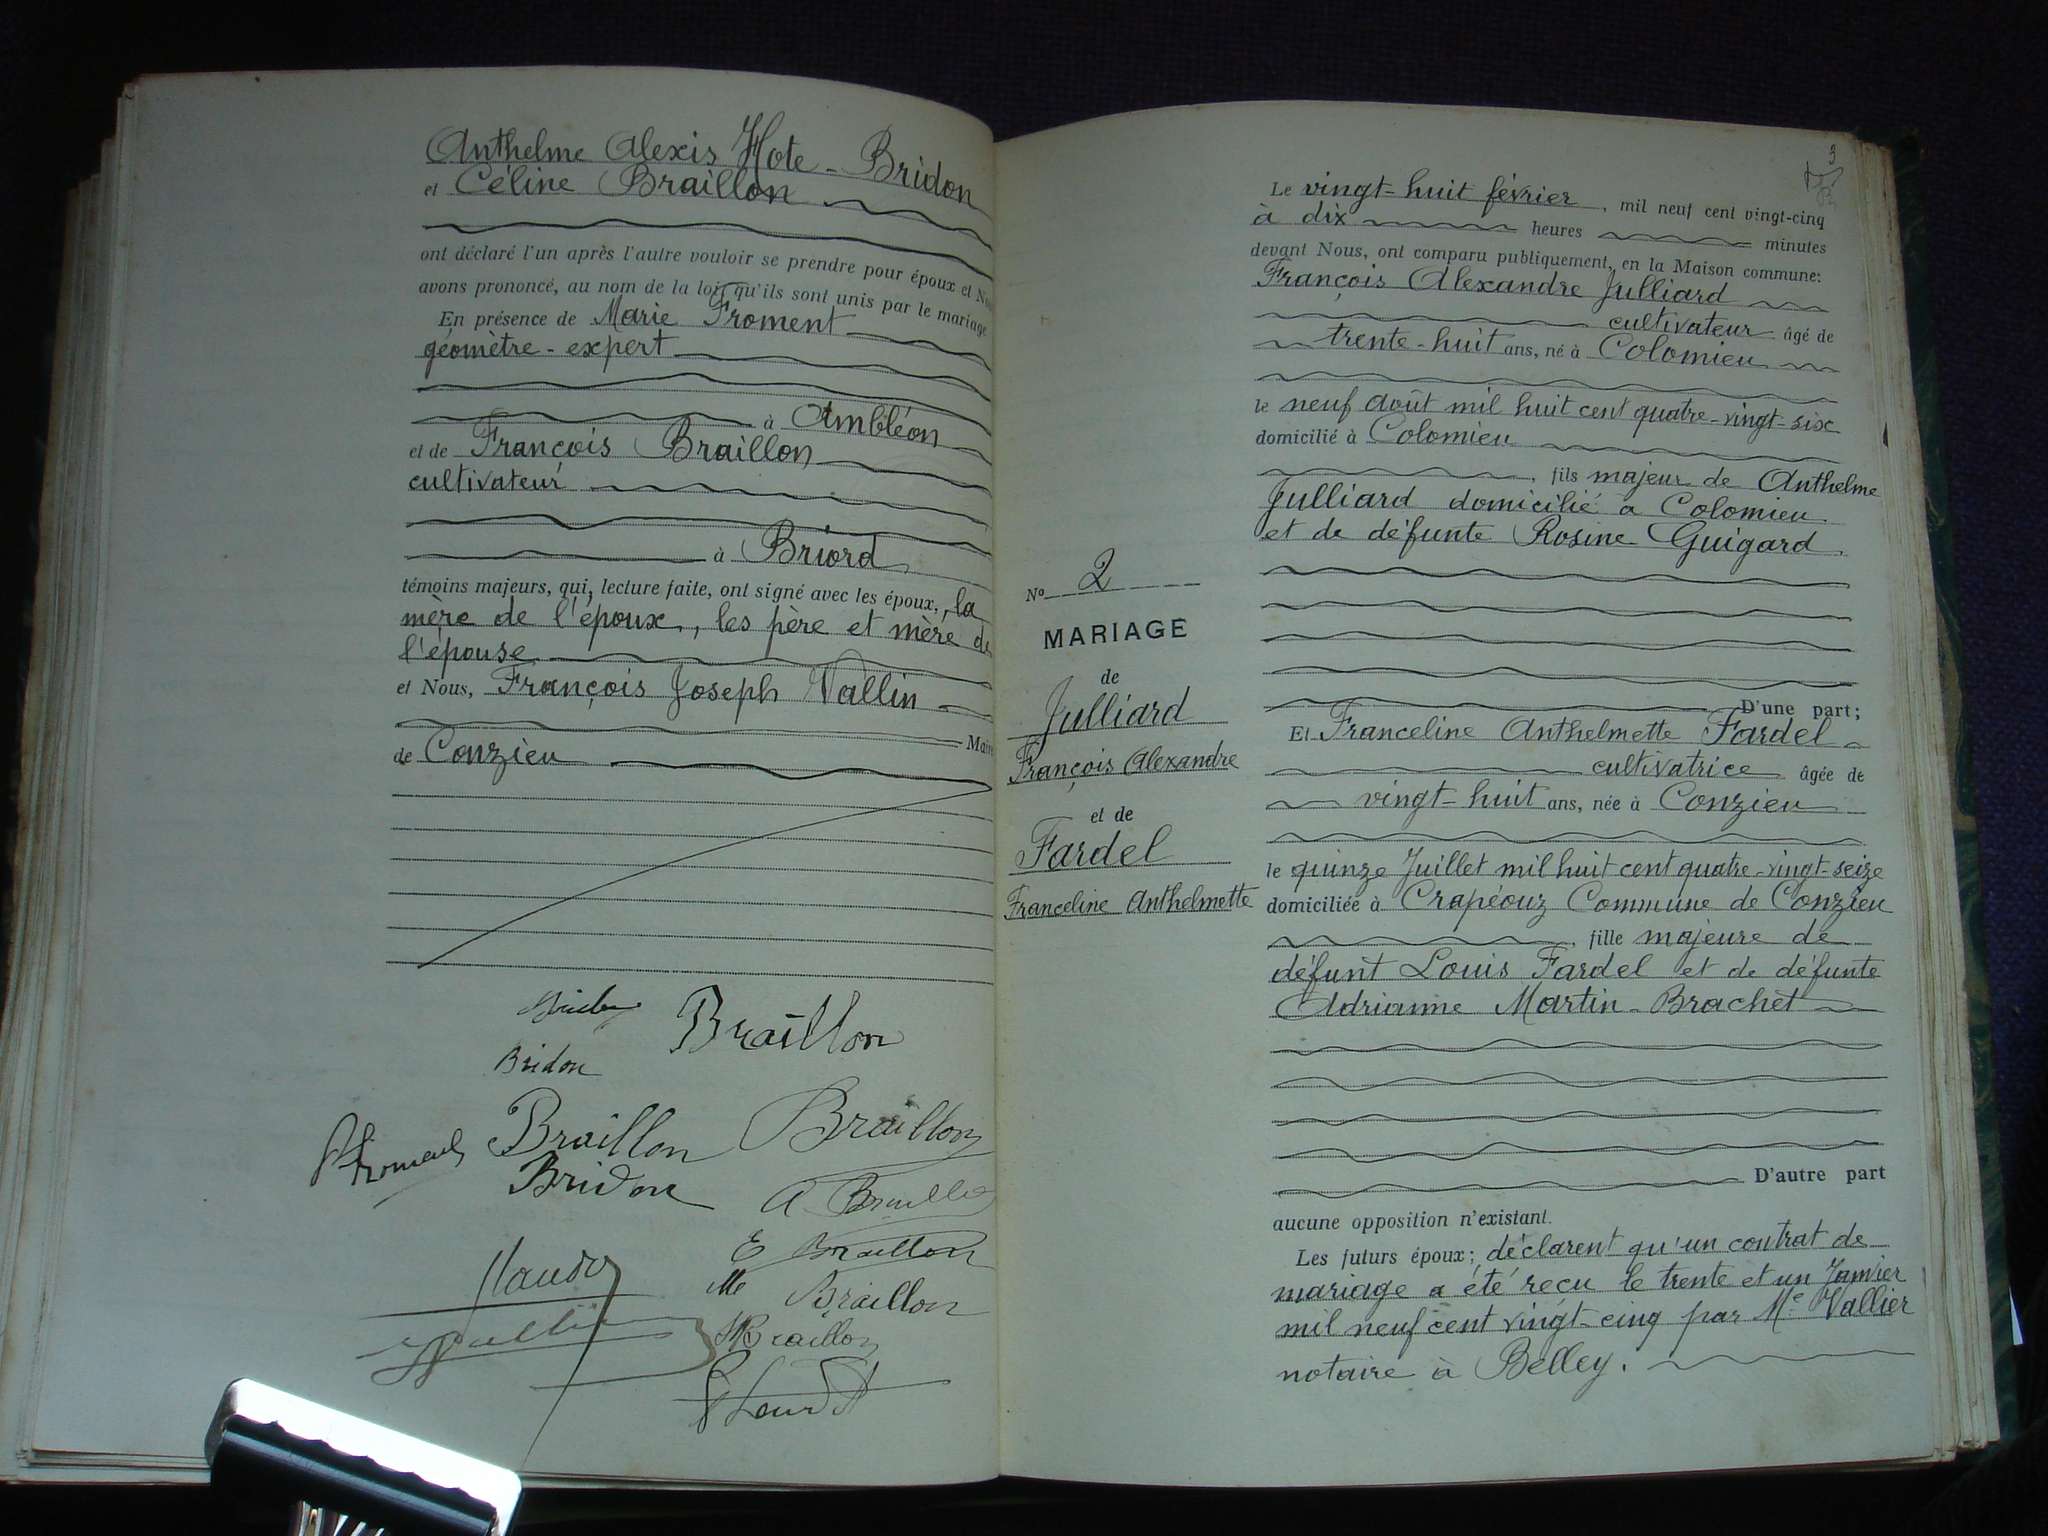 Anthelme Alexis Hote-Bridon
et Céline Braillon
ont déclaré l'un après l'autre vouloir se prendre pour époux et
avons prononcé, au nom de la loi, qu'ils sont unis par le mariage
En présence de Marie Froment
géomètre-expert
à Ambléon
et de François Braillon
cultivateur
à Briord
témoins majeurs, qui, lecture faite, ont signé avec les époux, la
mère de l'époux, les père et mère de
l'épouse
et Nous, François Joseph Vallin
Maire
de Conzieu
Braillon
Bridon
Braillon Braillon
Bridon
E Braillon
Me Braillon
Braillon
3
Le vingt-huit février, mil neuf cent vingt-cinq
à dix heures minutes
devant Nous, ont comparu publiquement, en la Maison commune:
François Alexandre Julliard
cultivateur âgé de
trente-huit ans, né à Colomieu
le neuf août mil huit cent quatre-vingt-six
domicilié à Colomieu
, fils majeur de Anthelme
Julliard domicilié à Colomieu
et de défunte Rosine Guigard.
D'une part;
Et Franceline Anthelmette Fardel
cultivatrice âgée de
vingt-huit ans, née à Conzieu
le quinze Juillet mil huit cent quatre-vingt-seize
domiciliée à Crapéouz Commune de Conzieu
, fille majeure de
défunt Louis Fardel et de défunte
Adrianne Martin-Brachet
D'autre part
aucune opposition n'existant.
Les futurs époux; déclarent qu'un contrat de
mariage a été reçu le trente et un Janvier
mil neuf cent vingt-cinq par Me Vallier
notaire à Belley.
No 2
MARIAGE
de
Julliard
François Alexandre
et de
Fardel
Franceline Anthelmette